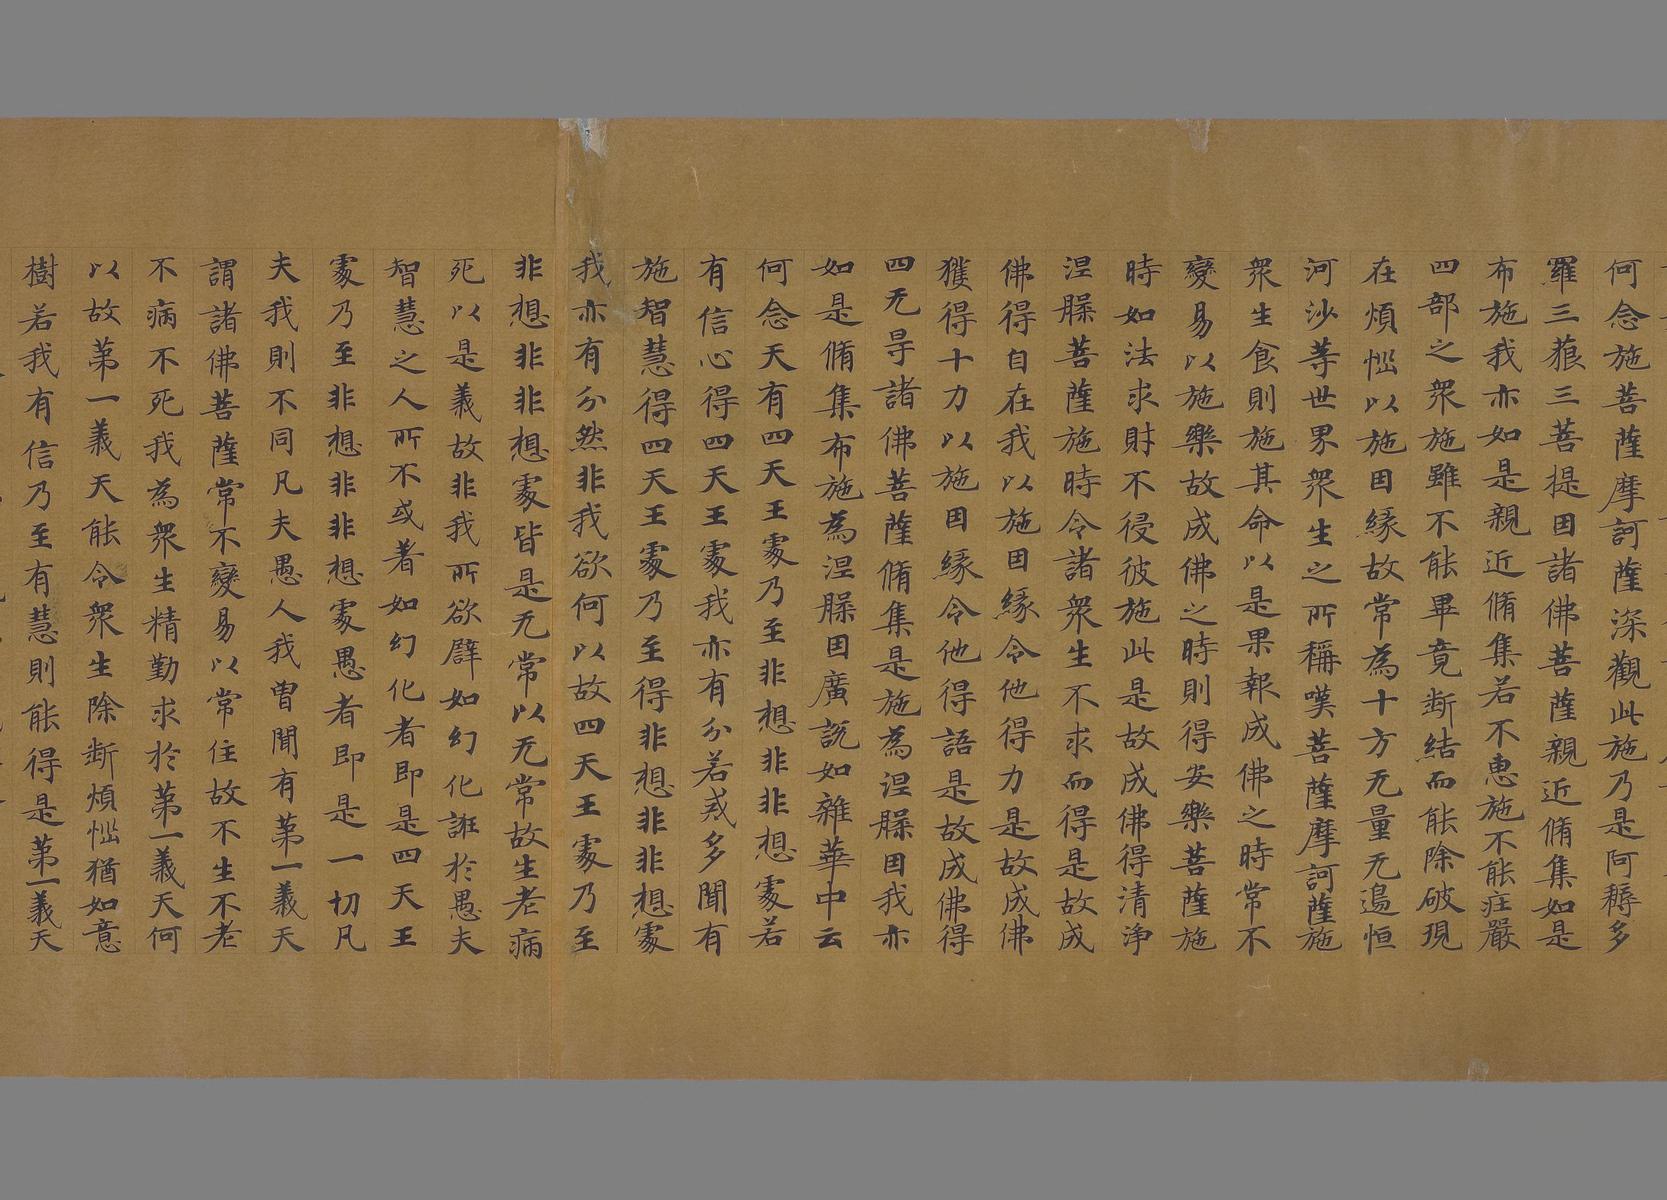 何念施菩薩摩訶薩深觀此施乃是阿耨多
羅三藐三菩提因諸佛菩薩親近脩集如是
布施我亦如是親近脩集若不惠施不能庄嚴
四部之衆施雖不能畢竟断結而能除破現
在煩惱以施因緣故常為十方无量无邊恒
河沙等世界衆生之所稱嘆菩薩摩訶薩施
衆生食則施其命以是果報成佛之時常不
變易以施樂故成佛之時則得安樂菩薩施
時如法求財不侵彼施此是故成佛得清淨
涅槃菩薩施時令諸衆生不求而得是故成
佛得自在我以施因緣令他得力是故成佛
獲得十力以施因緣令他得語是故成佛得
四无㝵諸佛菩薩脩集是施為涅槃因我亦
如是脩集布施為涅槃因廣說如雜華中云
何念天有四天王處乃至非想非非想處若
有信心得四天王處我亦有分若戒多聞有
施智慧得四天王處乃至得非想非非想處
我亦有分然非我欲何以故四天王處乃至
非想非非想處皆是无常以无常故生老病
死以是義故非我所欲譬如幻化誑於愚夫
智慧之人所不或著如幻化者即是四天王
處乃至非想非非想處愚者即是一切凡
夫我則不同凡夫愚人我曽聞有苐一義天
謂諸佛菩薩常不變易以常住故不生不老
不病不死我為衆生精勤求於苐一義天何
以故苐一義天能令衆生除断煩惱猶如意
樹若我有信乃至有慧則能得是苐一義天